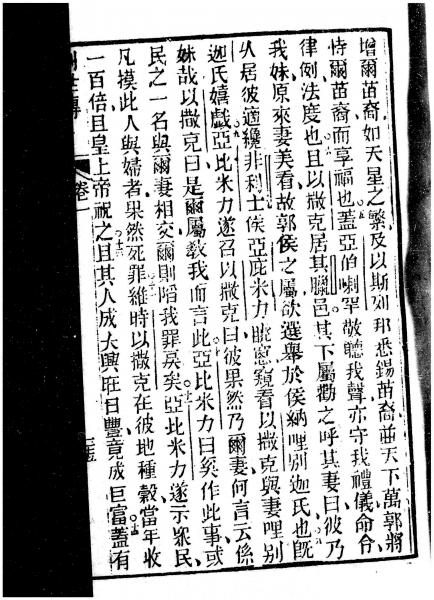 增爾苗裔如天星之繁及以斯列邦悉錫苗裔並天下萬郭將
恃爾苗裔而享福也蓋亞伯喇罕敬聽我聲亦守我禮儀命令
律例法度也且以撒克居其臘邑其下屬勸之呼其妻曰彼乃
我妹原來妻美看故郭侯之屬欲選舉於侯納哩別迦氏也旣
久居彼適纔非利士侯亞庇米力眺窗窺看以撒克與妻哩別
迦氏嬉戲亞比米力遂召以撒克曰彼果然乃爾妻何言云係
妹哉以撒克曰是爾屬教我而言此亞比米力曰奚作此事或
民之一名與爾妻相交爾則陷我罪戾矣亞比米力遂示眾民
凡摸此人與婦者果然死罪維時以撒克在彼地種穀當年收
一百倍且皇上帝祝之且其人成大興旺日豐竟成巨富蓋有
世傳
卷一